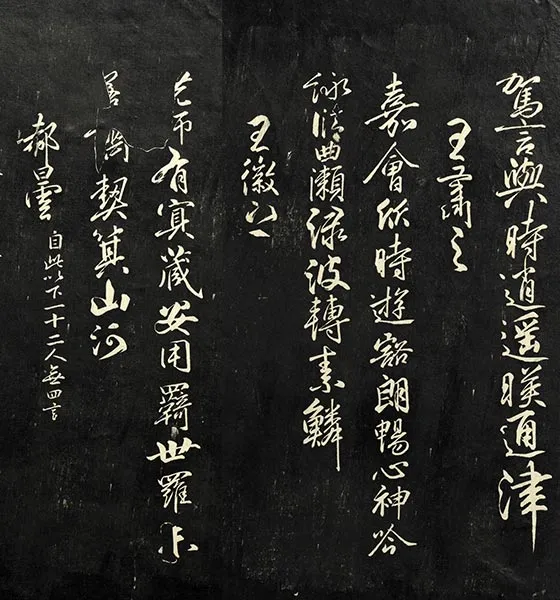 駕言興時逍遥暎通津
王肅之
嘉會欣時遊豁朗暢心神吟
詠曲瀨渌波轉素鱗
王徽之
有冥藏安用羇世羅
契箕山
郗曇 自此以下一十二人無四言